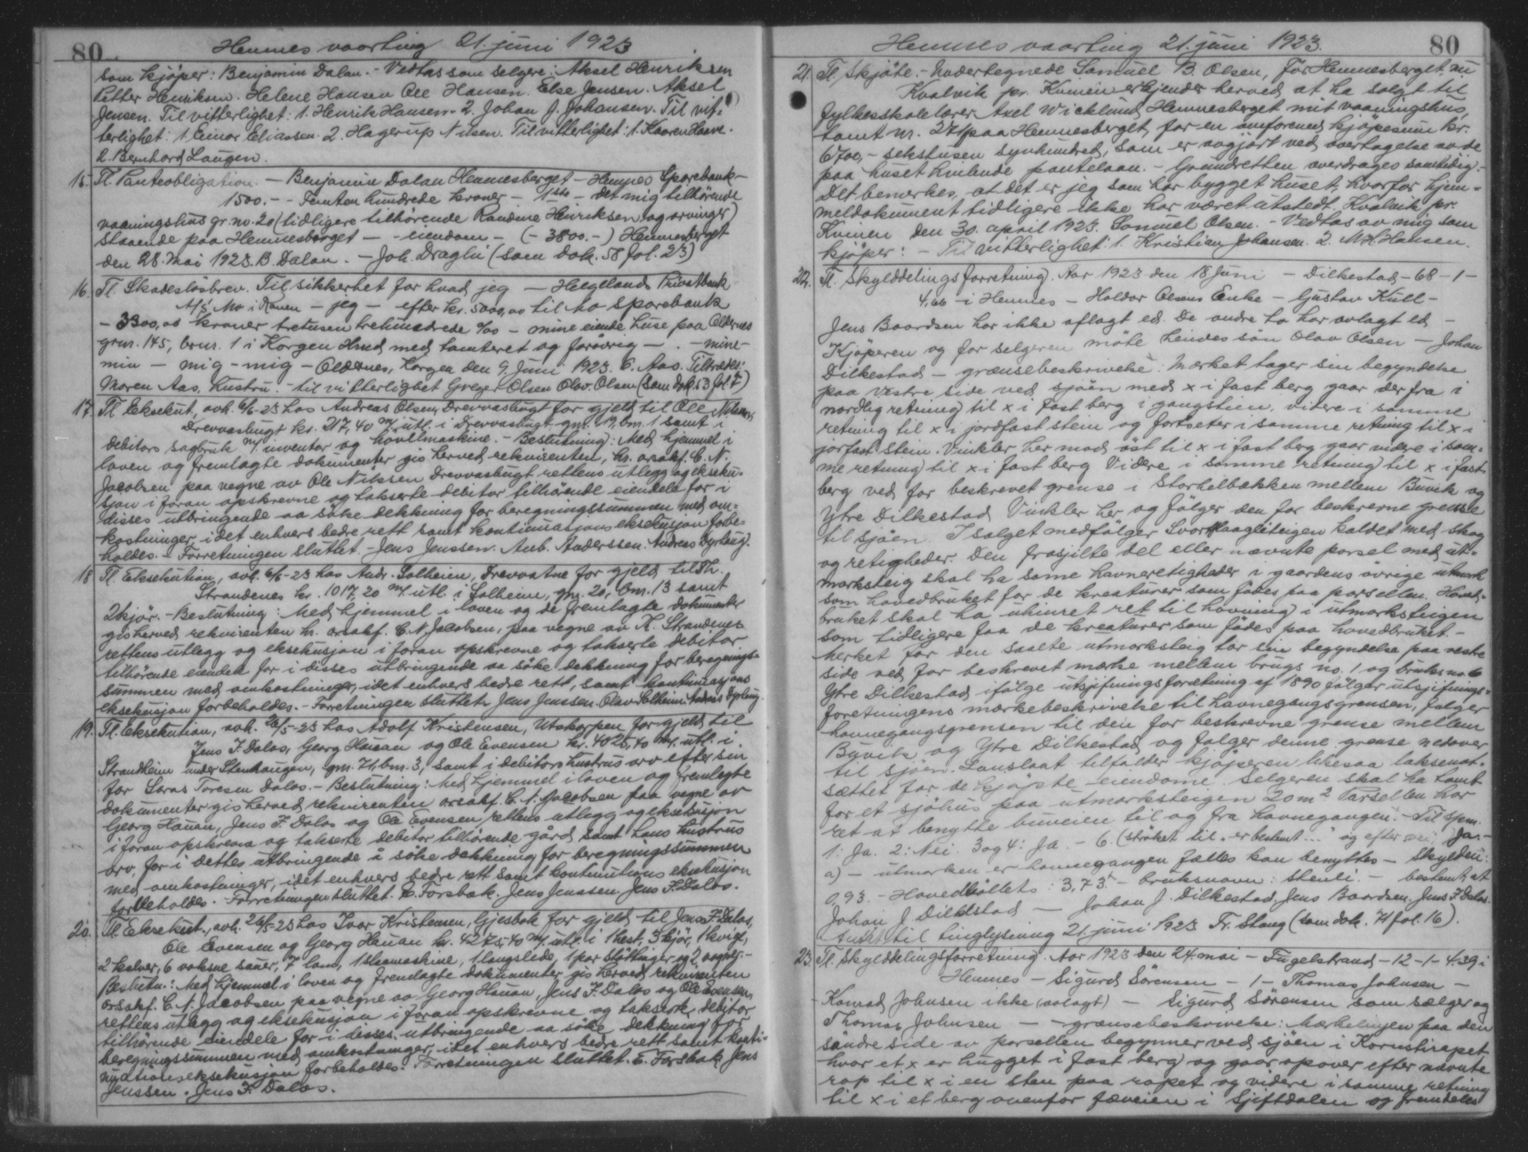 80
Hemnes vaarting 21. juni 1923
som kjøper: Benjamin Dalan. - Vedtas som selgere: Aksel Henriksen
Petter Henriksen. Helene Hansen Ole Hansen. Else Jensen. Aksel
Jensen. Til vitterlighet: 1. Henrik Hansen. 2. Johan J. Johansen. Til vit-
terlighet: 1. Einar Eliassen. 2. Hagerup Nilsen. Til vitterlighet: 1. Kaaren
2. Bernhard Laugen.
15. Tl. Panteobligation. - Benjamin Dalan Hemnesberget - Hemnes Sparebank -
1500. - - Femten hundrede kroner - 1ste - det mig tilhörende
vaaningshus gr. no. 20 (tidligere tilhørende Randine Henriksen og arvinger)
staaende paa Hemnesberget - - eiendom - (- 3800. -) Hemnesberget
den 28 mai 1923. B. Dalan. - Joh. Draglie (som dok. 58 fol. 23)
16. Tl. Skadeslösbrev. Til sikkerhet for hvad jeg - Helgelands Privatbank
A/S Mo i Ranen - jeg - efter kr. 5000,00 til Mo sparebank
- 3300,00 kroner tretusen trehundrede 00 - mine eiende huse paa Oldernes
grn. 145, brn. 1 i Korgen Hrred med tomteret og forövrig - - mine -
min - mig - mig - Oldernes, Korgen den 9 juni 1923. E. Aas. Tiltrædes:
Maren Aas, hustru. - til vitterlighet Olsen Olav Olsen (som dok 53 fol 7)
17. Tl. Eksekut., avh. 6/6-23 hos Andreas Olsen, Drevvasbugt for gjeld til Ole Nilsen,
Drevvasbugt kr. 217,40 m/ utl. i Drevvasbugt gm. 19, bm. 1 samt i
debitors sagbruk m/ inventar og hövelmaskine. - Beslutning: Med hjemmel i
loven og fremlagte dokumenter gis herved rekvirenten, hr. orsakf. C. N.
Jacobsen paa vegne av Ole Nilsen Drevvasbugt rettens utlegg og ekseku-
sjon i foran opskrevne og takserte debitor tilhörende eiendele for i
disses utbringende aa söke dekkning for beregningssummen med om-
kostninger, idet enhvers bedre rett samt kontinuasjons eksekusjon forbe-
holdes. - Forretningen sluttet. - Jens Jenssen. Anb. Anderssen. Andreas Dyrhaug.
18 Tl. Eksekution, avh. 6/6-23 hos Andr. Solheim, Drevvatne for gjeld til Th.
Strandenes kr. 1017,20 m/ utl. i Solheim, gm. 20, bm. 13 samt
2 kjör. - Beslutning: Med hjemmel i loven og de fremlagte dokumenter
gis herved rekvirenten hr. orsakf. C. N. Jacobsen, paa vegne av K. Strandenes
rettens utlegg og eksekusjon i foran opskrevne og takserte debitor
tilhörende eiendele for i disses utbringende aa söke dekkning for beregnings-
summen med omkostninger, idet enhvers bedre rett, samt kontinuasjons
eksekusjon forbeholdes. - Forretningen sluttet. Jens Jenssen. Olav Solheim. Andreas Dyrhaug.
19. Tl. Eksekution, avh. 26/5-23 hos Adolf Kristensen, Utskarpen for gjeld til
Jens F. Dalos, Georg Hauan og Ole Evensen kr. 4025,40 m/ utl. i
Strandheim under Stenhaugen, gm. 71, bm. 3, samt i debitors hustrus arv efter sin
far Lorns Toresen Dalos. - Beslutning: Med hjemmel i loven og fremlagte
dokumenter gis herved rekvirenten orsakf. C. N. Jacobsen paa vegne av
Georg Hauan, Jens F. Dalos og Ole Evensen rettens utlegg og eksekusjon
i foran opskrevne og takserte debitor tilhörende gård samt hans hustrus
arv for i dettes utbringende å söke dekkning for beregningssummen
med omkostninger, idet enhvers bedre rett samt kontinuations eksekusjon
forbeholdes. - Forretningen sluttet. E. Forsbak. Jens Jenssen. Jens F. Dalos.
20. Tl. Eksekut., avh. 26/5-23 hos Ivar Kristensen, Gjesbak for gjeld til Jens F. Dalos,
Ole Evensen og Georg Hauan kr. 4275,40 m/ utl. i 1 hest, 3 kjör, 1 kvige,
2 kalver, 6 voksne sauer, 7 lam, 1 slaamaskine, 1 langslede, 1 par
Beslutn.: Med hjemmel i loven og fremlagte dokumenter gis herved rekvirenten
orsakf. C. N. Jacobsen paa vegne av Georg Hauan, Jens F. Dalos og Ole Evensen,
rettens utlegg og eksekusjon i foran opskrevne og takserte, debitor
tilhörende eiendele for i disses utbringende aa söke dekkning for
beregningssummen med omkostninger, idet enhvers bedre rett samt konti-
nuationseksekusjon forbeholdes. Forretningen sluttet. E. Forsbak Jens
Jenssen. Jens F. Dalos.
Hemnes vaarting 21. juni 1923.
80
21. Tl. Skjöte. - Undertegnede Samuel B. Olsen, för Hemnesberget, nu
Kvalvik pr. Kvinen erkjender herved at ha solgt til
fylkesskolelærer Axel Wicklund, Hemnesberget mit vaaningshus,
tomt nr. 271 paa Hemnesberget, for en omforenet kjöpesum kr.
6700,- sekstusen syvhundred, som er avgjort ved overtagelse av de
paa huset heftende pantelaan. - Grundretten overdrages samtidig. -
Det bemerkes, at det er jeg som har bygget huset, hvorfor hjem-
meldokument tidligere ikke har været utstedt. Kvalvik pr.
Kvinen den 30. april 1923. Samuel Olsen. - Vedtas av mig som
kjöper: - Til vitterlighet 1. Kristian Johansen. 2. M. Hansen.
22. Tl. Skylddelingsforretning. Aar 1923 den 18 juni - Dilkestad - 68 - 1 -
4,66 - i Hemnes - Haldor Olsens Enke - Gustav Kull -
Jens Baardsen har ikke aflagt ed. De andre to har avlagt ed -
Kjöperen og for selgeren möte hendes sön Olav Olsen - Johan
Dilkestad - grænsebeskrivelse: Mærket tager sin begyndelse
paa vestre side ved sjöen med x i fast berg gaar derfra i
nordlig retning til x i fast berg i gangstien, videre i samme
retning til x i jordfast stein og fortsetter i samme retning til x i
jorfast stein. Vinkler her mod öst til x i fast berg gaar videre i sam-
me retning til x i fast berg Videre i samme retning til x i fast
berg ved før beskrevet grense i Storkelbækken mellem Buvik og
Ytre Dilkestad Vinkler her og fölger den før beskrevne grense
til sjöen. I salget medfölger kaldet med skog
og retigheder. Den frasjilte del eller nævnte parsel med ut-
marksteig skal ha same havneretigheder i gaardens övrige utmark
som hovedbruket for de kreaturer som födes paa parsellen. Hoved-
bruket skal ha uhinret ret til havning i utmarksteigen
som tidligere for de kreaturer som födes paa hovedbruket. -
Merket for den solgte utmarksteig tar sin begyndelse paa vestre
side ved før beskrevet mærke mellem bruks no. 1 og bruks no 6
Ytre Dilkestad ifölge utsjiftningsforretning af 1890 fölger utsjiftnings-
foretningens mærkebeskrivelse til havnegangsgrensen, fölger
havnegangsgrensen til den før beskrevne grense mellem
Buvik og Ytre Dilkestad og fölger denne grense nedover
til sjöen. Landslaat tilfalder kjöperen likesaa laksenot-
sættet for de kjöpte eiendome. Selgeren skal ha tomt
for et sjöhus paa utmarksteigen 20 m² Parsellen har
ret at benytte buveien til og fra havnegangen. - Til spm.
1: Ja. 2: Nei. 3 og 4: Ja. - 6 (strøket til "er bestemt..." og efter Ja. -
a) - utmarken er havnegangen fælles kan benyttes - Skylden:
0,93 - Hovedbölets: 3,73 - bruksnavn: Stenli. - bestemt at
Johan J. Dilkestad - Johan J. Dilkestad, Jens Baardsen, Jens F. Dalos.
til tinglysning 21 juni 1923 Fr. Stang (som dok. 71 fol. 16).
23. Tl. Skylddelingsforretning. Aar 1923 den 24 mai - Fugelstrand - 12 - 1 - 4.39 i
Hemnes - Sigurd Sörensen - 1 - Thomas Johnsen -
Konrad Johnsen ikke (avlagt) - Sigurd Sörensen som sælger og
Thomas Johnsen - - grænsebeskrivelse: Mærkelinjen paa den
söndre side av parsellen begynner ved sjöen i
hvor et x er hugget i fast berg og gaar opover efter nævnte
rap til x i en sten paa rapet og videre i samme retning
til x i et berg ovenfor fæveien i Sjiftdalen og fremdeles